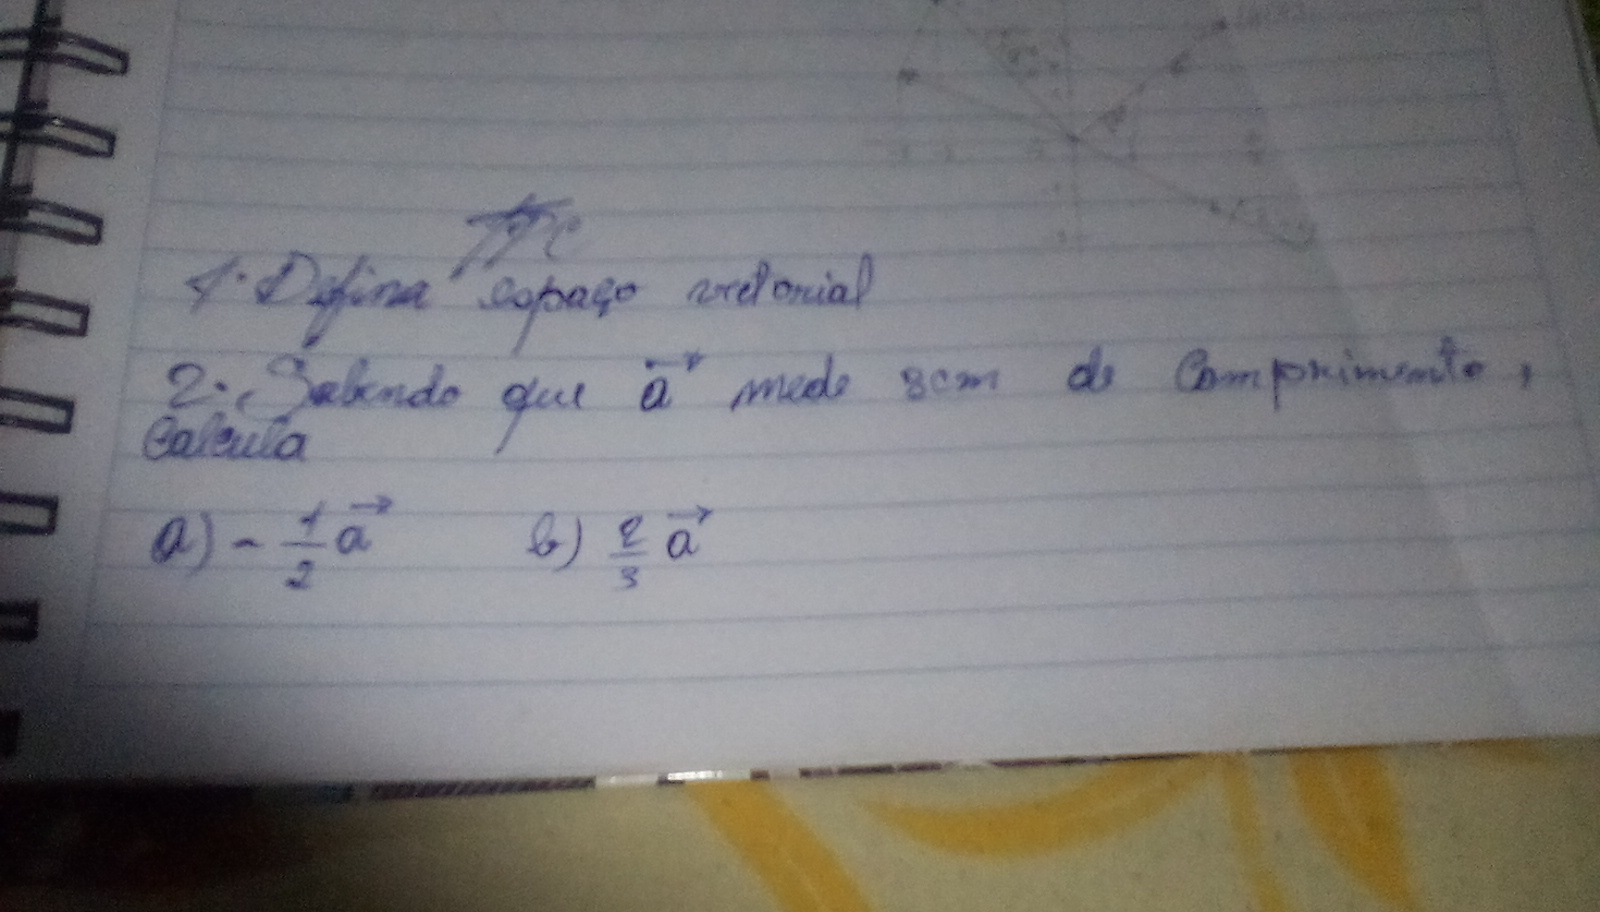 TPC
1. Defina espaço vetorial
2. Sabendo que a⃗ mede 8cm de Comprimento,
Calcula
a) - 1/2 a⃗   b) 2/3 a⃗